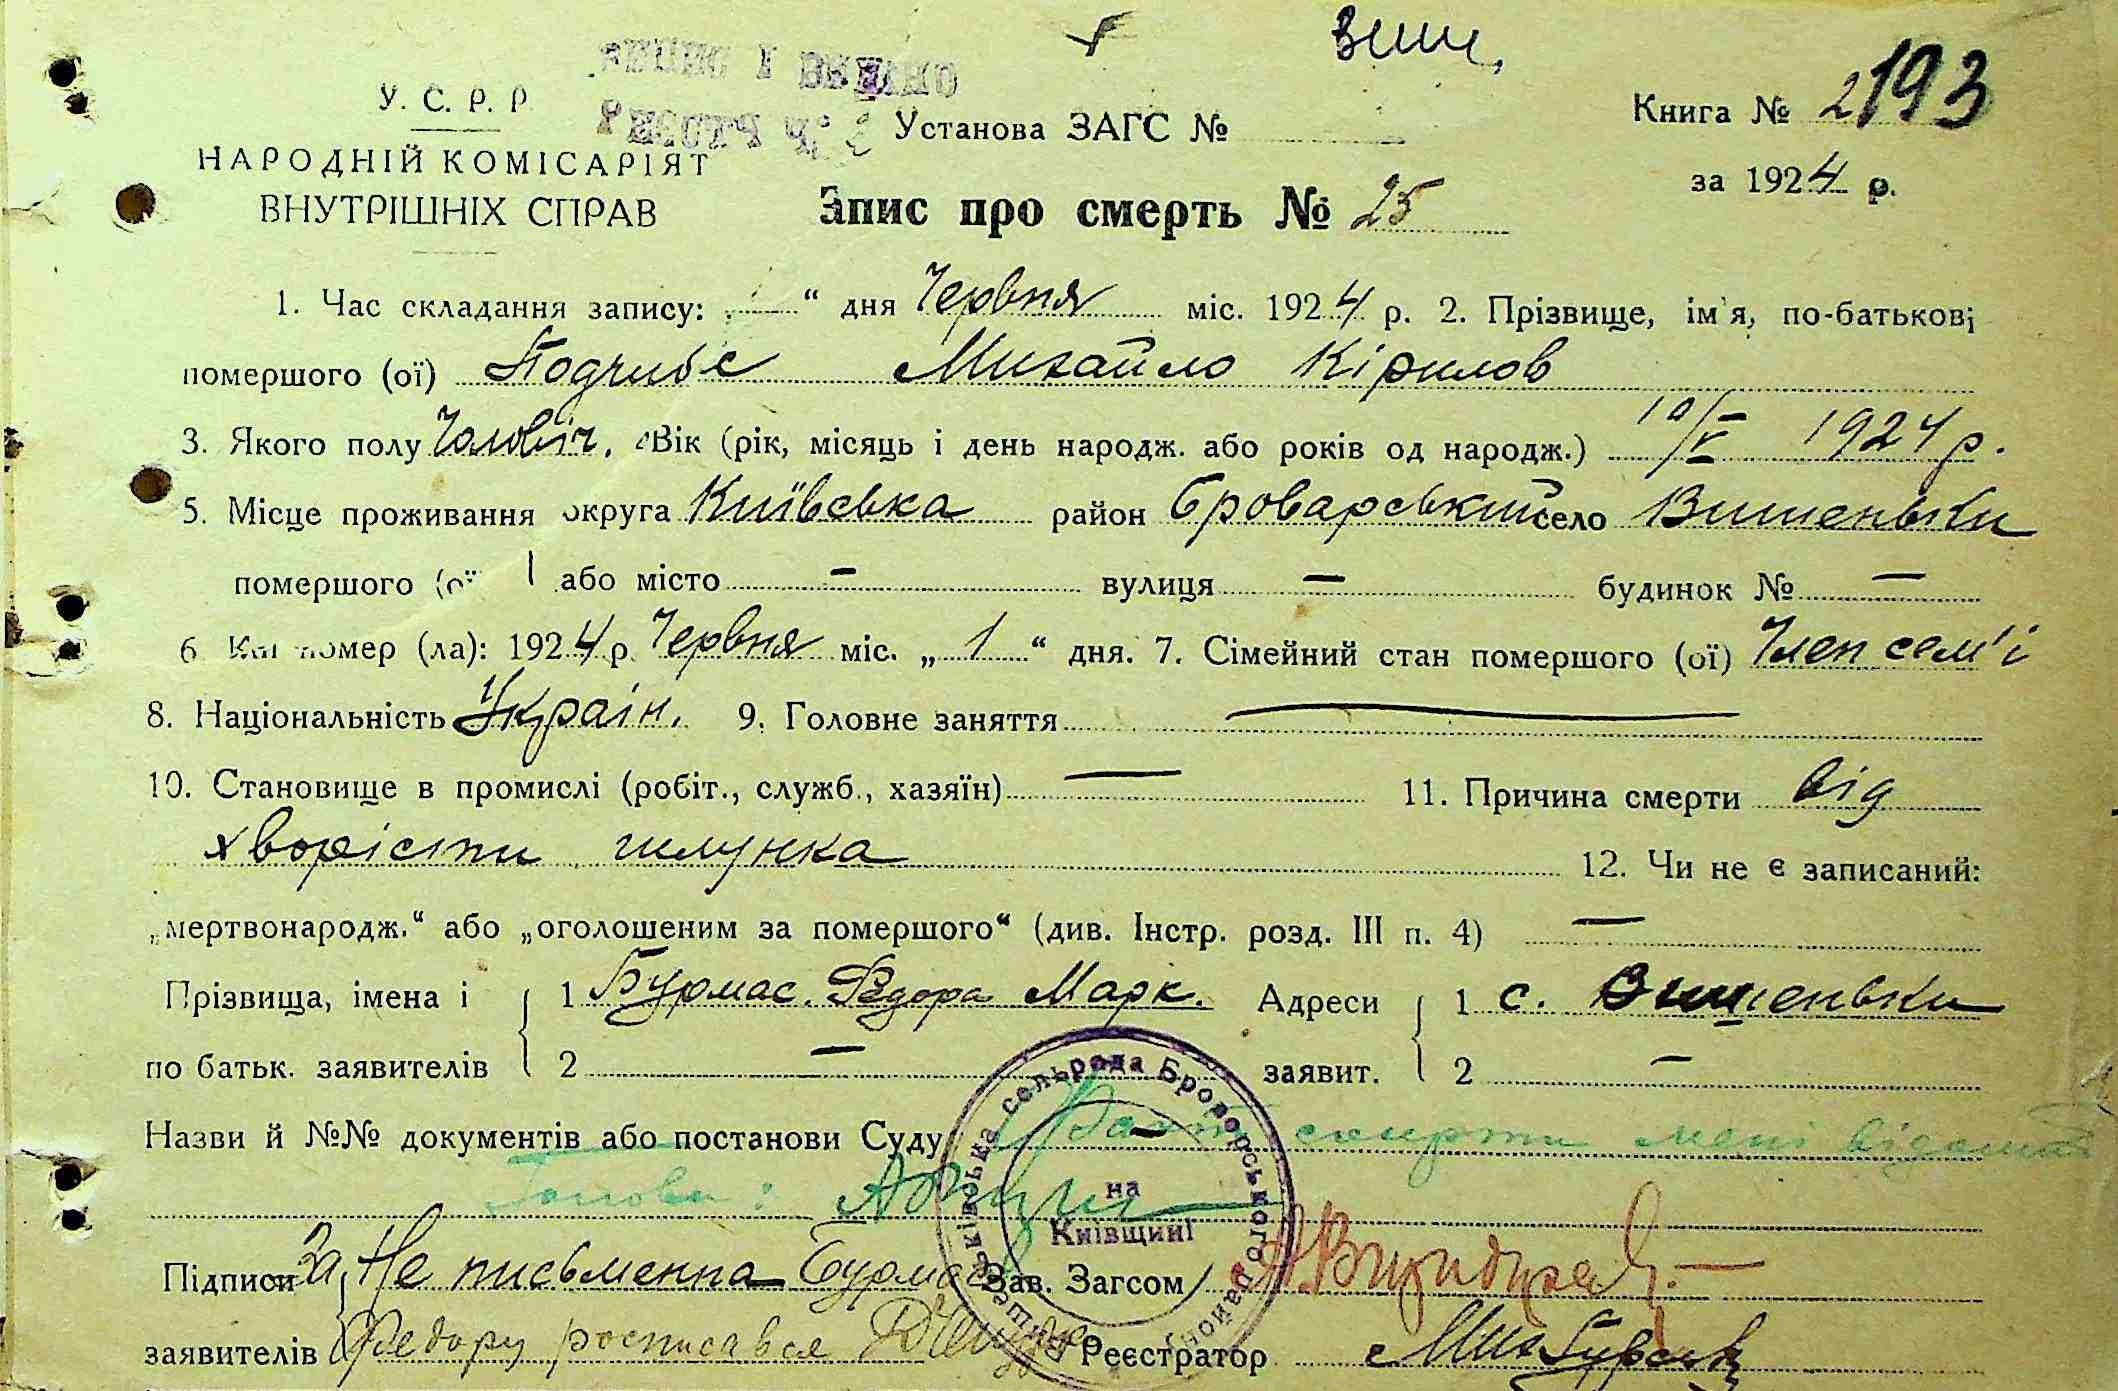 Виш,
У. С. Р. Р
Установа ЗАГС №
Книга № 2 193
НАРОДНІЙ КОМІСАРІЯТ
за 1924 р.
ВНУТРІШНІХ СПРАВ
Запис про смерть № 25
1. Час складання запису: “ дня Червня міс. 1924 р. 2. Прізвище, ім'я, по-батькові
помершого (ої) Михайло Кірилов
3. Якого полу Чоловіч. Вік (рік, місяць і день народж. або років од народж.) 10/V 1924 р.
5. Місце проживання округа Київська район Броварський село Вишеньки
помершого (ої або місто – вулиця – будинок № –
6 Кол помер (ла): 1924 р. Червня міс. „ 1 “ дня. 7. Сімейний стан помершого (ої) Член сем'ї
8. Національність Україн. 9. Головне заняття —
10. Становище в промислі (робіт., служб., хазяїн) — 11. Причина смерти від
хворісти шлунка
12. Чи не є записаний:
„мертвонародж.“ або „оголошеним за помершого“ (див. Інстр. розд. III п. 4) —
Прізвища, імена і 1 Бурмас. Федора Марк. Адреси 1 с. Вишеньки
по батьк. заявителів 2 – заявит. 2 –
Назви й №№ документів або постанови Суду – Факт смерти мені відомий
Голова:
на
Київщині
Підписи За Не письменна Бурмас Зав. Загсом
заявителів Федору росписався Реєстратор